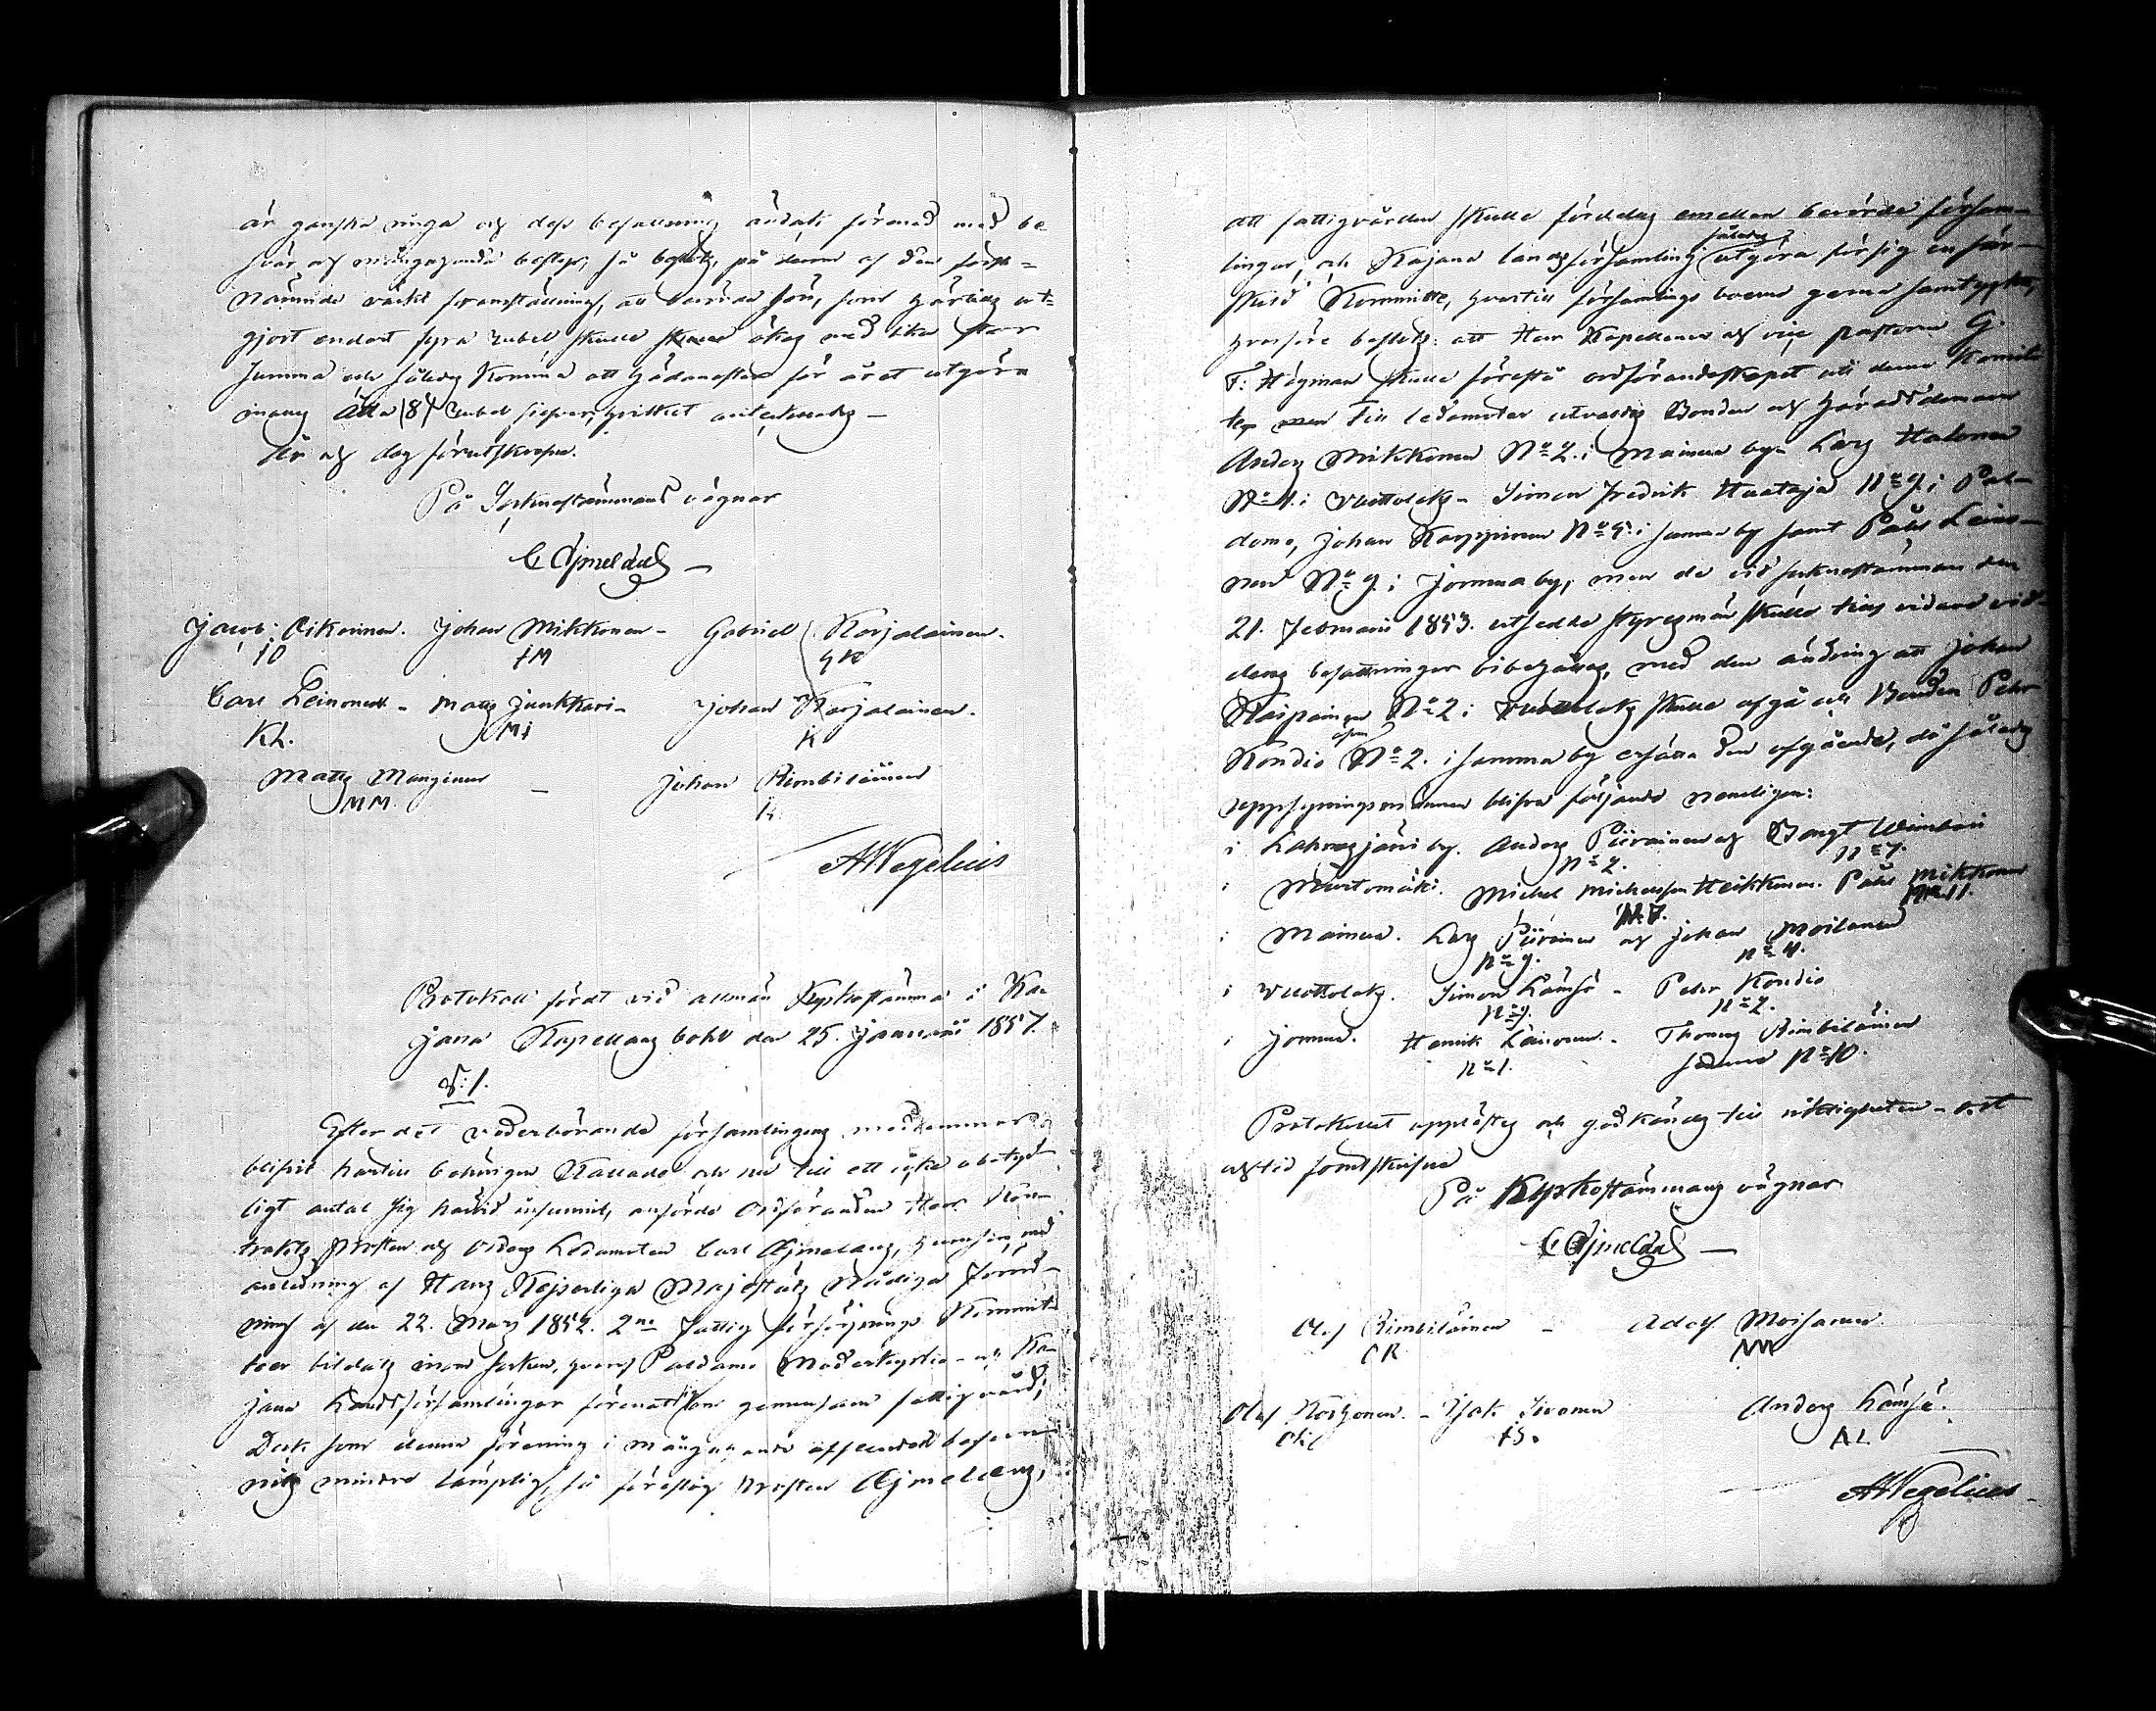 är ganska ringa och dess befattning ändock förenad med be
svär och mångahanda bestyr, så beslöts, på derom af den först=
nämnde väckt framställning, att berörde lön, som härtills ut=
gjort endast fyra rubel skulle ökas med lika stor
summa och således komma att hädanefter för året utgöra
inalles Åtta (8) rubel silfver, hvilket antecknades –
År och dag förutskrefne.
På Sockenstämmans vägnar
C Ajmelæus –
Jacob Oikarinen. Johan Mikkonen – Gabriel Karjalainen.
IO IM GK
Carl Leinonen – Matts Junkkari – Johan Karjalainen.
KL. MJ K
Matts Manninen – Johan Rimbiläinen
MM. R.
A Wegelius
Protokoll fördt vid allmän Kyrkostämma i Ka-
jana Kapellans bohl den 25. Januarii 1857.
§:1.
Efter det vederbörande församlingens medlemmar
blifvit härtill behörigen kallade och nu till ett icke obetyd-
ligt antal sig härvid infunnit, anförde Ordföranden Herr Kon-
trakts Prosten och Ordens Ledamoten Carl Ajmelæus, hurusom med
anledning af Hans Kejserliga Majestäts Nådiga Förord-
ning af den 22. Mars 1852. 2ne Fattig försörjnings Kommit-
teer bildats inom socken, hvaraf Paldamo Moderkyrko- och Ka-
jana Landsförsamlingar förenatt om gemensam fattigvård;
Dock som denna förening i mångahanda afseenden befun-
nits mindre lämplig, så föreslog Prosten Ajmelæus,
att fattigvården skulle fördelas emellan berörde försam-
lingar, och Kajana landsförsamling således utgöra för sig en sär-
skild Kommitte, hvartill församlings boerne gerna samtyckte,
hvarföre beslöts: att Herr Kapellanen och vice pastoren G.
F: Högman skulle förestå ordförandeskapet uti denne Komit-
te, men till ledamöter utvaldes Bonden och Häradsdomaren
Anders Mikkonen No 2. i Mainua by – Lars Halonen
No 4. i Vuottolaks – Simon Fredrik Haataja No 9. i Pal-
damo, Johan Karppinen No 4. i samma by samt Påhl Leino-
nen No 9. i Jormua by, men de vid sockenstämman den
21. Februarii 1853. utsedde styresmän skulle tills vidare vid
deras befattningar bibehållas, med den ändring att Johan
Karpainen No 2 i Vuottolaks skulle afgå och Bonden Petr
Kondio No 2. i samma by ersätta den afgående, då således
uppsyningsmännen blifva följande nemligen:
i Lahnasjärvi by. Anders Piirainen och Bengt Wimbari
No 2. No 7.
i Murtomäki. Michel Michelsson Heikkinen. Påhl Mikkonen
No 7. No 11.
i Mainua. Lars Piirainen och Johan Moilanen
No 9. No 4.
i Vuottolaks. Simon Lämsä – Petr Kondio
No 9. No 2.
i Jormua. Henrik Leinonen – Thomas Rimbiläinen
No 1. No 10.
Protokollet upplästes och godkändes till riktigheten – ort
och tid förutskrifne
På Kyrkostämmans vägnar
C Ajmelæus –
Olof Rimbiläinen – Adolf Moisanen.
OR AM
Olof Korhonen. – Isak Sivonen Anders Lämsä.
OK IS. AL
A Wegelius